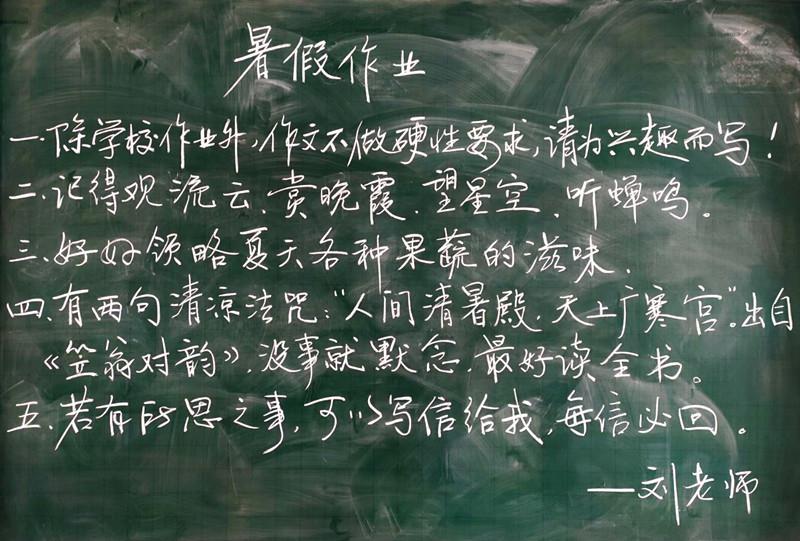 暑假作业
一.除学校作业外,作文不做硬性要求,请为兴趣而写!
二.记得观流云、赏晚霞、望星空、听蝉鸣。
三.好好领略夏天各种果蔬的滋味.
四.有两句清凉法咒:“人间清暑殿,天上广寒宫”。出自
《笠翁对韵》,没事就默念,最好读全书。
五.若有所思之事,可以写信给我,每信必回。
——刘老师